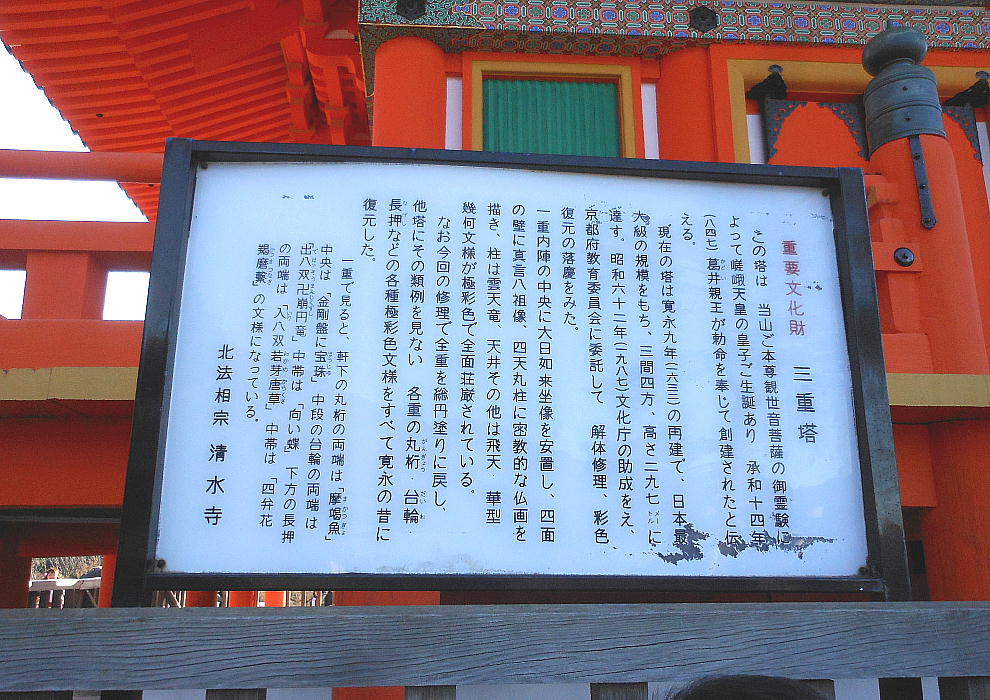 重要文化財　三重塔
この塔は　当山ご本尊観世音菩薩の御霊験に
よって嵯峨天皇の皇子ご生誕あり　承和十四年
（八四七）葛井親王が勅命を奉じて創建されたと伝
える。
現在の塔は寛永九年（一六三二）の再建で、日本最
大級の規模をもち、三間四方、高さ二九・七メートルに
達す。昭和六十二年（一九八七）文化庁の助成をえ、
京都府教育委員会に委託して　解体修理、彩色、
復元の落慶をみた。
一重内陣の中央に大日如来坐像を安置し、四面
の壁に真言八祖像、四天丸柱に密教的な仏画を
描き、柱は雲天竜、天井その他は飛天・華型
幾何文様が極彩色で全面荘厳されている。
なお今回の修理で全重を総円塗りに戻し、
他塔にその類例を見ない　各重の丸桁・台輪・
長押などの各種極彩色文様をすべて寛永の昔に
復元した。
一重で見ると、軒下の丸桁の両端は「摩竭魚」
中央は「金剛盤に宝珠」中段の台輪の両端は
「出八双卍崩円竜」中帯は「向い蝶」下方の長押
の両端は「入八双若芽唐草」中帯は「四弁花
羯磨繋」の文様になっている。
北法相宗　清水寺